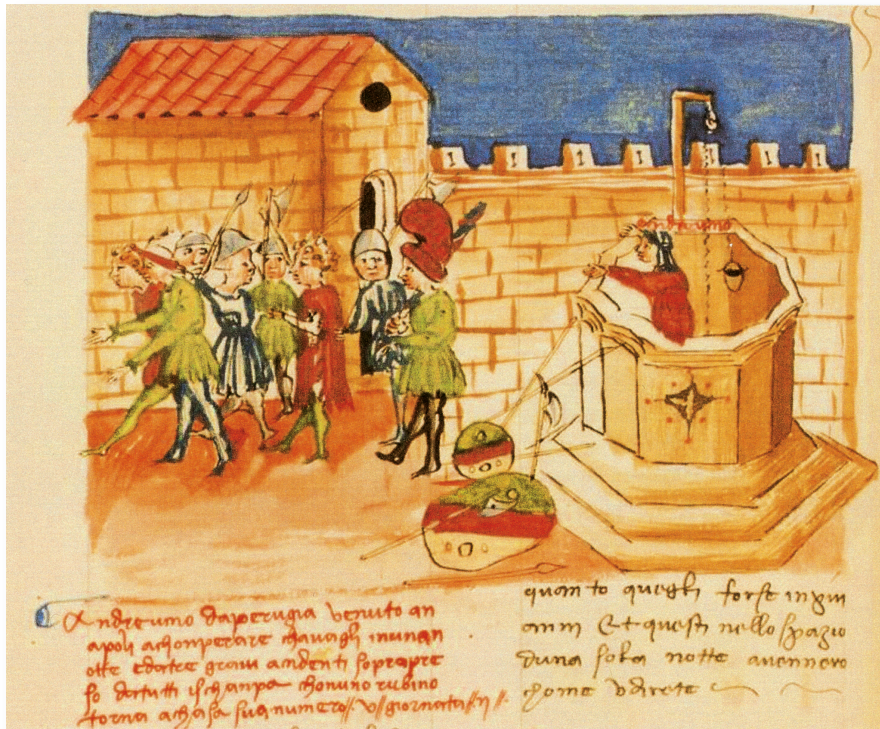 andreuuo
Andreuuo daperugia venuto an
apoli achonperare chavagli inunan
otte edatre gravi accidenti soprapre
so datutti ischanpa chonuno rubino
torna achasa sua numero // v // giornata // ij //
quanto quegli forse inpiu
anni Et questi nello spazio
duna sola notte avennero
chome udirete